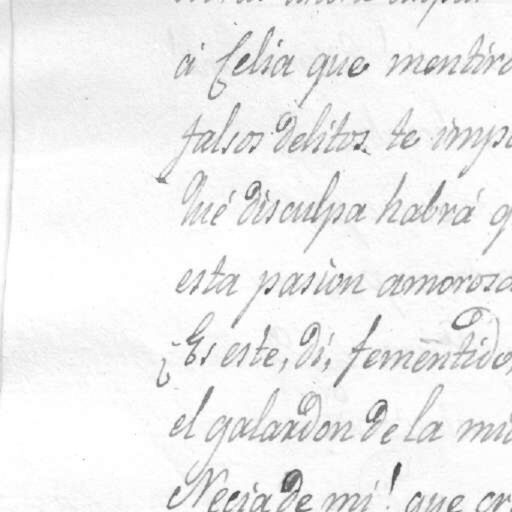 á Celia que mentiro
falsos delitos te impo
Qué disculpa habrá q
esta pasion amorosa
¿Es este, di, fementido,
el galardon de la mu
Necia de mí! que cr